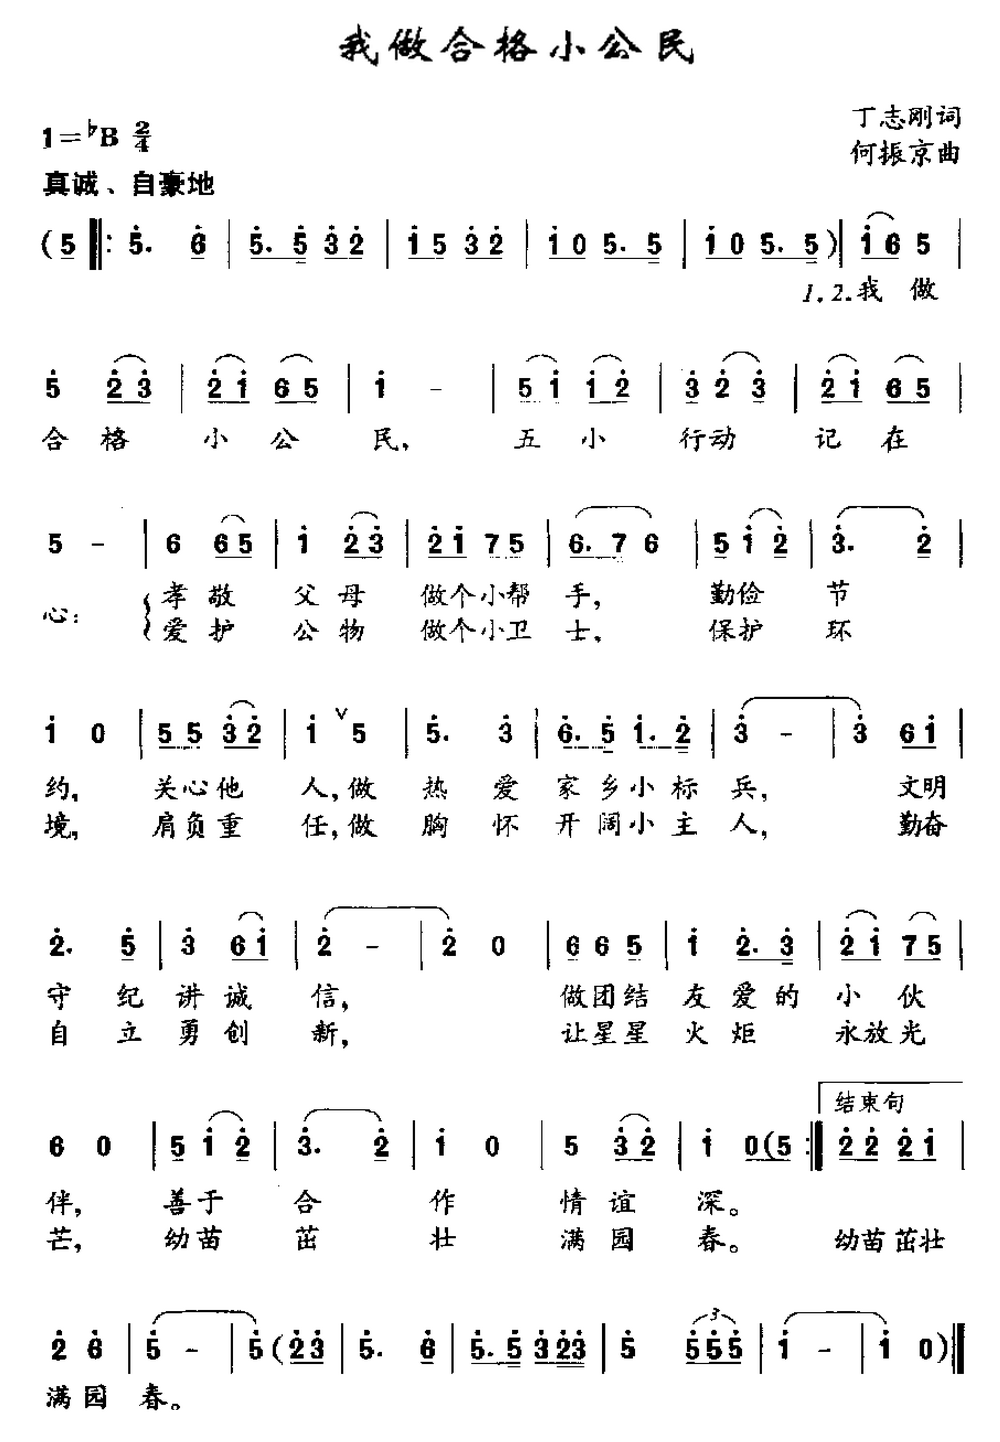 我做合格小公民
1=♭B 2/4
丁志刚词
真诚、自豪地
何振京曲
(5 ‖: 5. 6 | 5. 5 3 2 | 1 5 3 2 | 1 0 5. 5 | 1 0 5. 5 )| 1 6 5 |
1.2.我 做
5 2 3 | 2 1 6 5 | 1 - | 5 1 1 2 | 3 2 3 | 2 1 6 5 |
合 格 小 公 民, 五 小 行动 记 在
5 - | 6 6 5 | 1 2 3 | 2 1 7 5 | 6. 7 6 | 5 1 2 | 3. 2 |
心: 孝 敬 父 母 做个小帮 手, 勤俭 节
爱 护 公 物 做个小卫 士, 保护 环
1 0 | 5 5 3 2 | 1 ∨ 5 | 5. 3 | 6. 5 1. 2 | 3 - | 3 6 1 |
约, 关心他 人,做 热 爱 家 乡小 标 兵, 文明
境, 肩负重 任,做 胸 怀 开 阔小 主 人, 勤奋
2. 5 | 3 6 1 | 2 - | 2 0 | 6 6 5 | 1 2. 3 | 2 1 7 5 |
守 纪 讲 诚 信, 做团结 友 爱 的 小 伙
自 立 勇 创 新, 让星星 火 炬 永放 光
结束句
6 0 | 5 1 2 | 3. 2 | 1 0 | 5 3 2 | 1 0 (5 :‖ 2 2 2 1 |
伴, 善于 合 作 情 谊 深。
芒, 幼苗 茁 壮 满 园 春。 幼苗 茁壮
2 6 | 5 - | 5 (2 3 | 5. 6 | 5. 5 3 2 3 | 5 5 5 5 3 | 1 - | 1 0 )‖
满 园 春。